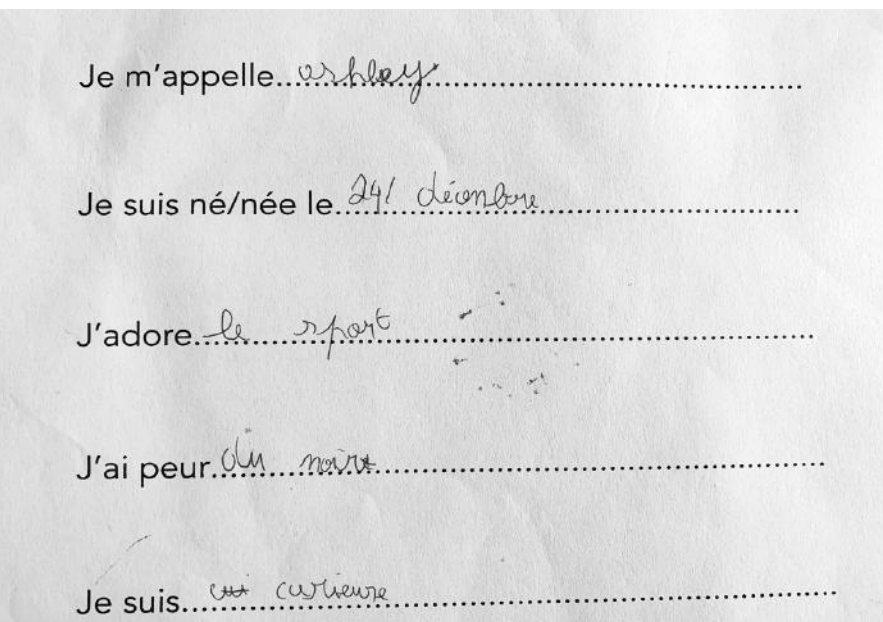 Je m'appelle ashley
Je suis né/née le 24 décembre
J'adore le sport
J'ai peur du noire
Je suis curieuse